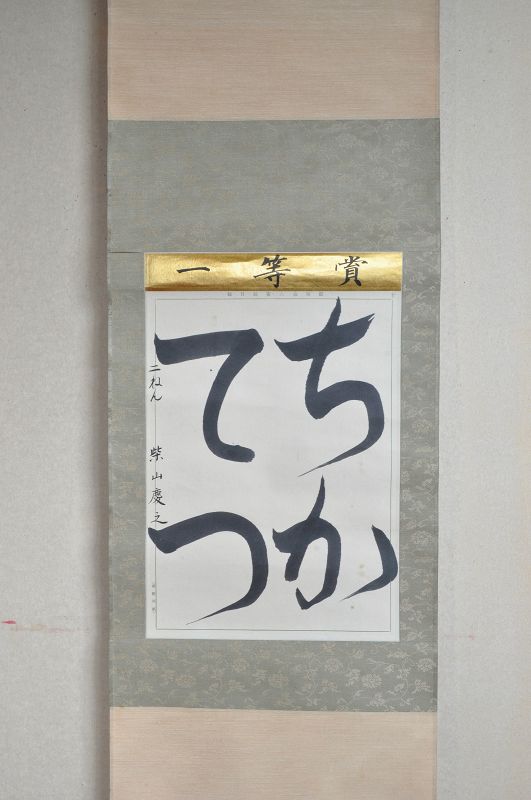 一等賞
ちか
てつ
二ねん 柴山慶之